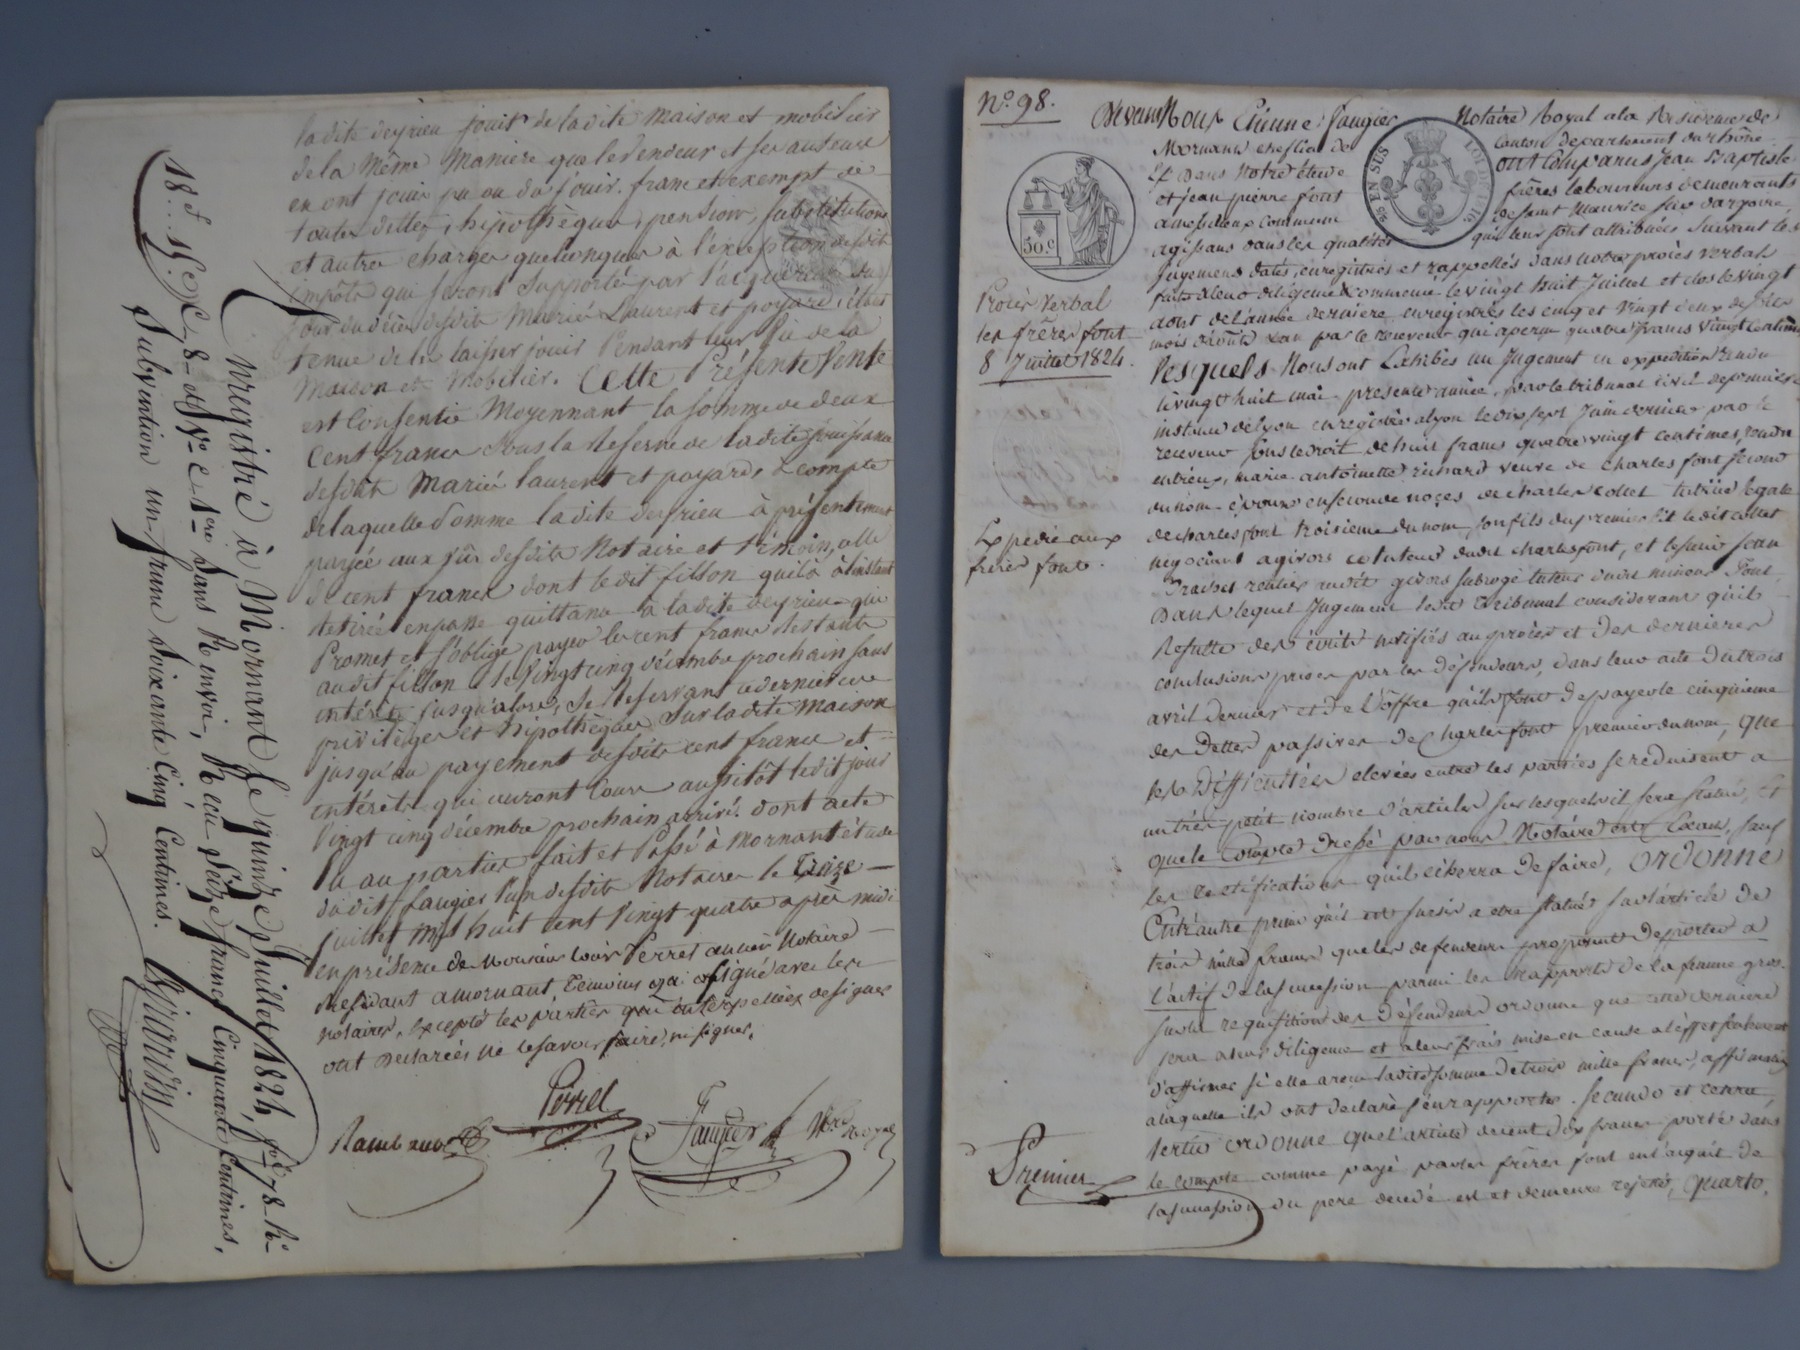 ladite deyrieu jouir de ladite maison et mobilier
de la même manière que le vendeur et ses auteurs
en ont joui pu ou dû jouir. franc et exempt de
toutes dettes, hipothèques, pension, substitutions
et autres charges quelconques à l'exception desdits
impôts qui seront supportés par l'acquéreur du
jour du décès desdits Mariés Laurent et payard, étant
tenue de les laisser jouir Pendant leur vie de la
Maison et Mobilier. Cette Présente Vente
est Consentie Moyennant la somme de deux
Cent francs sous la Réserve de ladite jouissance
desdits Mariés laurent et payard, à compte
de laquelle somme ladite deyrieu à présentement
payée aux vûe desdits Notaire et témoin, elle
de cent francs dont ledit fillon qui l'a à l'instant
retirée en passe quittance à ladite deyrieu qui
Promet et s'oblige payer les cent francs restants
audit fillon le Vingt cinq décembre prochain sans
intérêts jusqu'alors, se Réservant ce dernier
privilèges et hipothèque sur ladite Maison
jusqu'au payement desdits cent francs et
intérêts qui auront Cours aussitôt ledit jour
Vingt cinq décembre prochain arrivé. dont acte
lu au parties fait et Passé à Mornant étude
dudit faugier l'un desdits Notaires le treize
juillet Mil huit cent Vingt quatre après midi
en présence de Monsieur Perret ancien Notaire
Résidant a mornant témoins qui a signé avec les
notaires, Excepté les parties qui interpellées de signer
ont Déclarées ne le savoir faire, ni signer.
Perret
Faugier
Enregistré à Mornant Le quinze Juillet 1824, f° 78 R°
C. 8 et V° C. 1ere sans Renvoi, Reçu Seize francs Cinquante Centimes,
Subvention un franc soixante cinq Centimes.
N° 98.
Devant Nous Etienne Faugier Notaire Royal a la Résidence de
Mornant chef lieu de Canton département du rhône
Et Dans Notre étude ont Comparus jean Baptiste
et jean pierre font frères laboureurs demeurants
commune de saint Maurice sur dargoire
agissans dans les qualités qui leur sont attribuées suivant les
jugemens datés, enregistrés et rappellés dans notre procès verbal
fait a leur diligence commencé le vingt huit Juillet et clos le vingt
aout de l'année dernière, enregistrés les cinq et vingt deux desdits
mois par le receveur qui a perçu quatre francs vingt centimes
30.c
25 EN SUS
LOI DE 1816
Procès Verbal
les frères font
8 Juillet 1824.
Expédié aux
frères font.
Lesquels Nous ont Exhibés un Jugement en expédition rendu
le vingt huit mai présente année, par le tribunal civil de première
instance de lyon enregistré a lyon le dix sept Juin dernier par le
receveur sous le droit de huit francs quatre vingt centimes, rendu
entr'eux, marie antoinette richard veuve de charles font second
du nom épouse en seconde noces de charles collet tutrice légale
de charles font troisieme du nom, son fils du premier lit ledit collet
négociant a givors cotuteur dudit charles font, et le sieur jean
rentier audit givors subrogé tuteur dudit mineur font,
Dans lequel Jugement ledit tribunal considerant qu'il
Résulte des écrits notifiés au procès et des dernières
conclusions prises par les défendeurs, dans leur acte du trois
avril dernier et de l'offre qu'ils font de payer le cinquieme
des Dettes passives de Charles font premier du nom, que
les Difficultés elevées entre les parties se réduisent a
un très petit nombre d'articles sur lesquels il sera statué, et
que le Compte dressé par nous Notaire est Exact, sauf
les rectifications qu'il écherra de faire, ORDONNE
Entr'autre primo qu'il est sursis a etre statué sur l'article de
trois mille francs que les defendeurs proposent de porter a
l'actif de la succession parmi les rapports de la femme gros.
sur la réquisition des Défendeurs ordonne que cette derniere
sera a leur diligence et a leur frais mise en cause a l'effet seulement
d'affirmer si elle a reçu ladite somme de trois mille francs, affirmation
a laquelle ils ont déclaré s'en rapporter. secundo et
tertio ordonne que l'article de cent dix francs porté dans
le compte comme payé par les frères font en l'acquit de
la succession du pere decedé est et demeure rejetté, quarto,
Premier